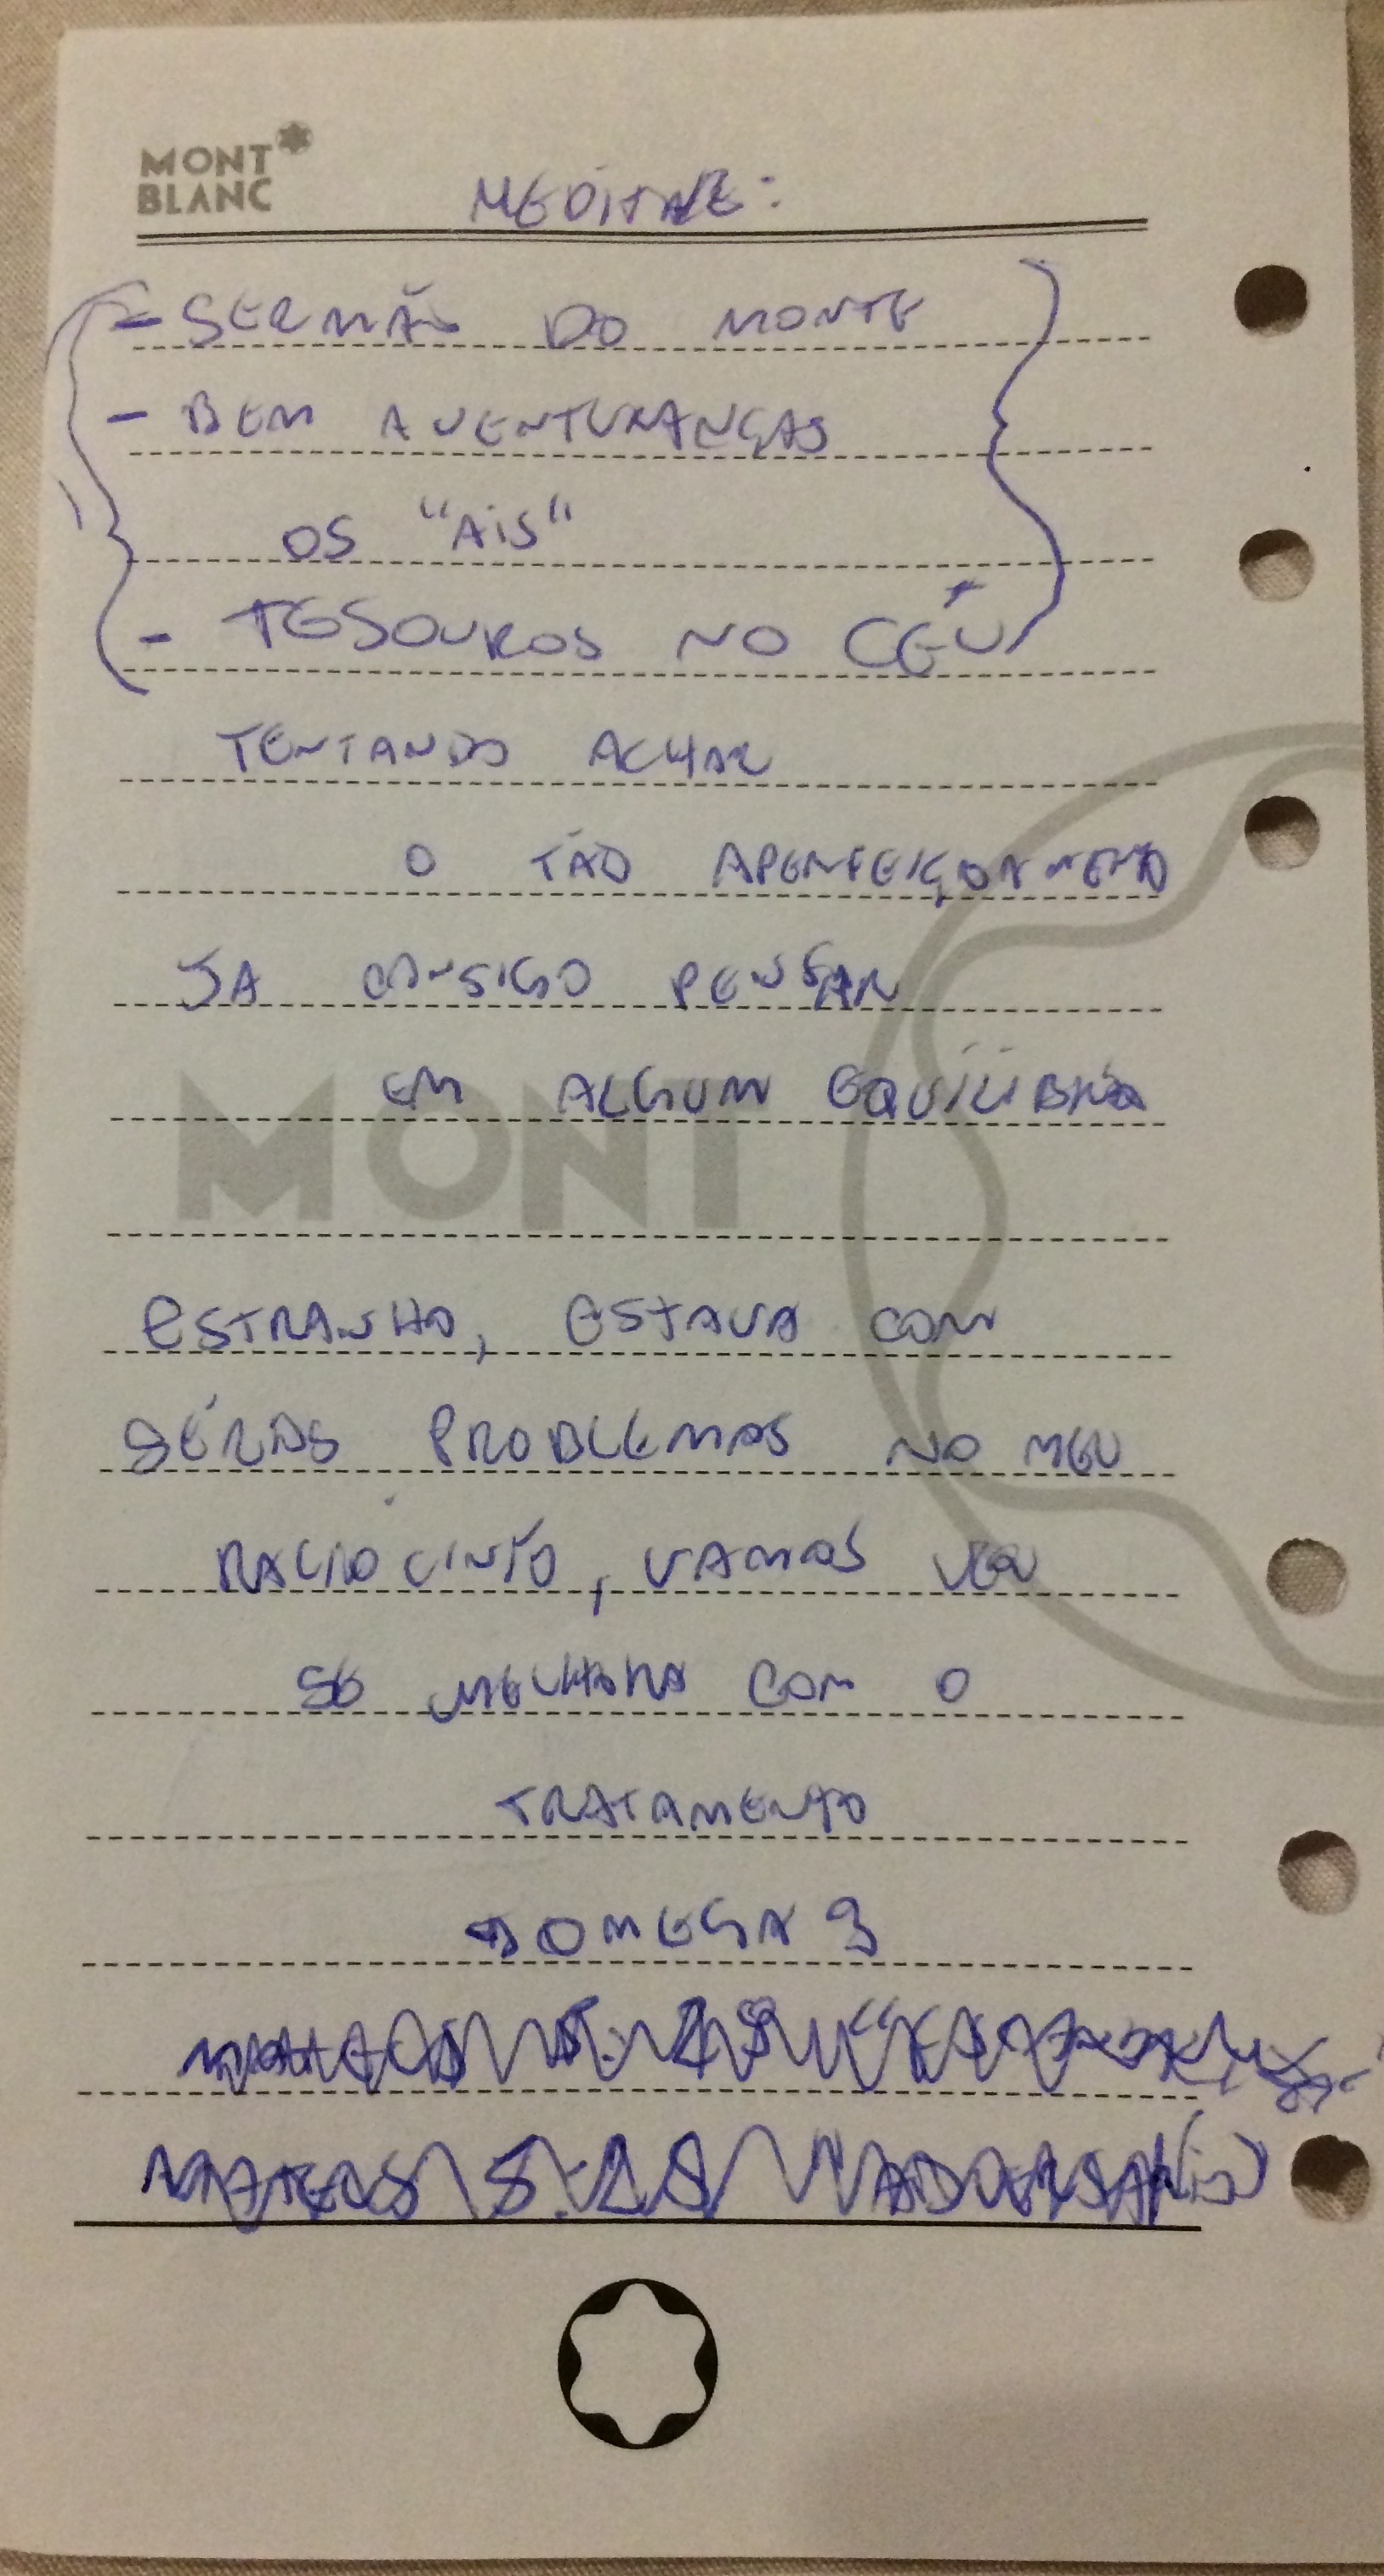 MONT
BLANC
MEDITAR:
- SERMÃO DO MONTE
- BEM AVENTURANÇAS
OS "AIS"
- TESOUROS NO CÉU
TENTANDO ACHAR
O TÃO APERFEIÇOAMENTO
JA CONSIGO PENSAR
EM ALGUM EQUILÍBRIO
MONT
ESTRANHO, ESTAVA COM
SÉRIOS PROBLEMAS NO MEU
RACIOCINIO, VAMOS VER
SE MELHORA COM O
TRATAMENTO
OMEGA 3
MATEUS 5:25 ADVERSARIO